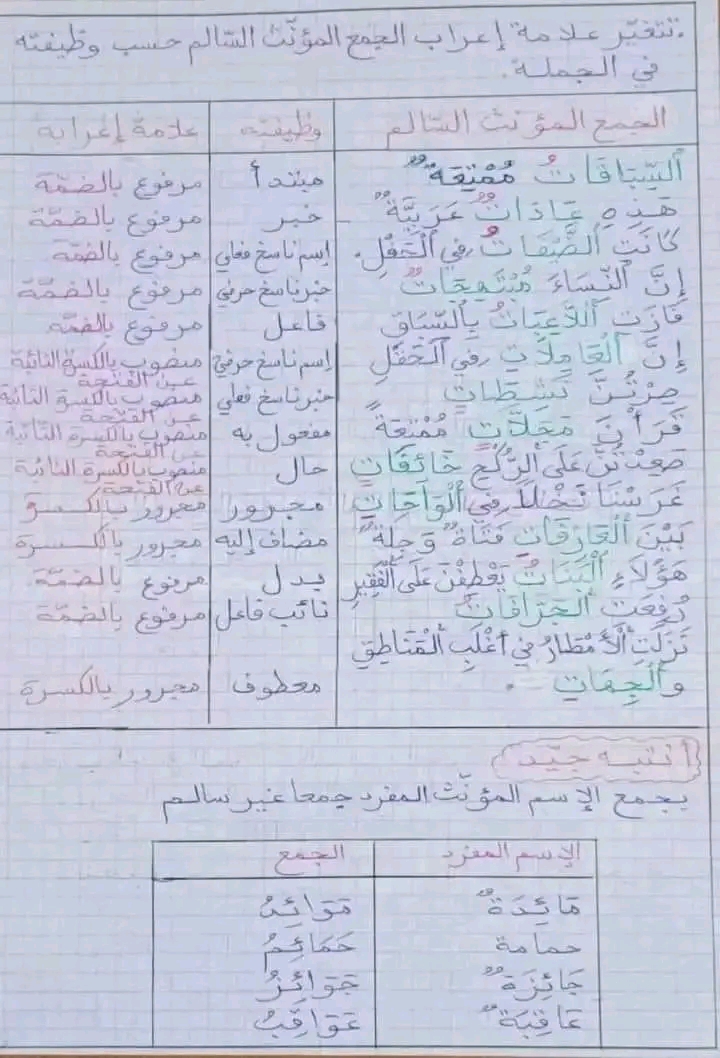 .تتغيّر علامة إعراب الجمع المؤنّث السّالم حسب وظيفته
في الجملة.
الجمع المؤنث السّالم وظيفته علامة إعرابه
اَلسِّبَاقَاتُ مُمْتِعَةٌ مبتدأ مرفوع بالضمّة
هَذِهِ عَادَاتٌ عَرَبِيَّةٌ خبر مرفوع بالضمّة
كَانَتِ الضَّيْفَاتُ فِي الْحَفْلِ. إسم ناسخ فعلي مرفوع بالضمّة
إِنَّ النِّسَاءَ مُبْتَهِجَاتٌ خبر ناسخ حرفي مرفوع بالضمّة
فَازَتِ اللَّاعِبَاتُ بِالسِّبَاقِ فاعل مرفوع بالضمّة
إِنَّ الْعَامِلَاتِ فِي الْحَفْلِ إسم ناسخ حرفي منصوب بالكسرة النائبة عن الفتحة
صِرْتُنَّ نَشِطَاتٍ خبر ناسخ فعلي منصوب بالكسرة النائبة عن الفتحة
قَرَأْنَ مَجَلَّاتٍ مُمْتِعَةً مفعول به منصوب بالكسرة النائبة عن الفتحة
صَعِدْتُنَّ عَلَى الرُّكْحِ خَائِفَاتٍ حال منصوب بالكسرة النائبة عن الفتحة
غَرَسْنَا نَخْلًا فِي الْوَاحَاتِ مجرور مجرور بالكسرة
بَيْنَ الْعَازِفَاتِ فَتَاةٌ وَجِلَةٌ مضاف إليه مجرور بالكسرة
هَؤُلَاءِ الْبَنَاتُ يَعْطِفْنَ عَلَى الْفَقِيرِ بدل مرفوع بالضمّة
رُفِعَتِ الْجَرَّافَاتُ نائب فاعل مرفوع بالضمّة
نَزَلَتِ الْأَمْطَارُ فِي أَغْلَبِ الْمَنَاطِقِ
وَالْجِهَاتِ . معطوف مجرور بالكسرة
أنتبه جيّد
يجمع الإسم المؤنّث المفرد جمعا غير سالم
الإسم المفرد الجمع
مَائِدَةٌ مَوَائِدُ
حمامة حَمَائِمُ
جَائِزَةٌ جَوَائِزُ
عَاقِبَةٌ عَوَاقِبُ